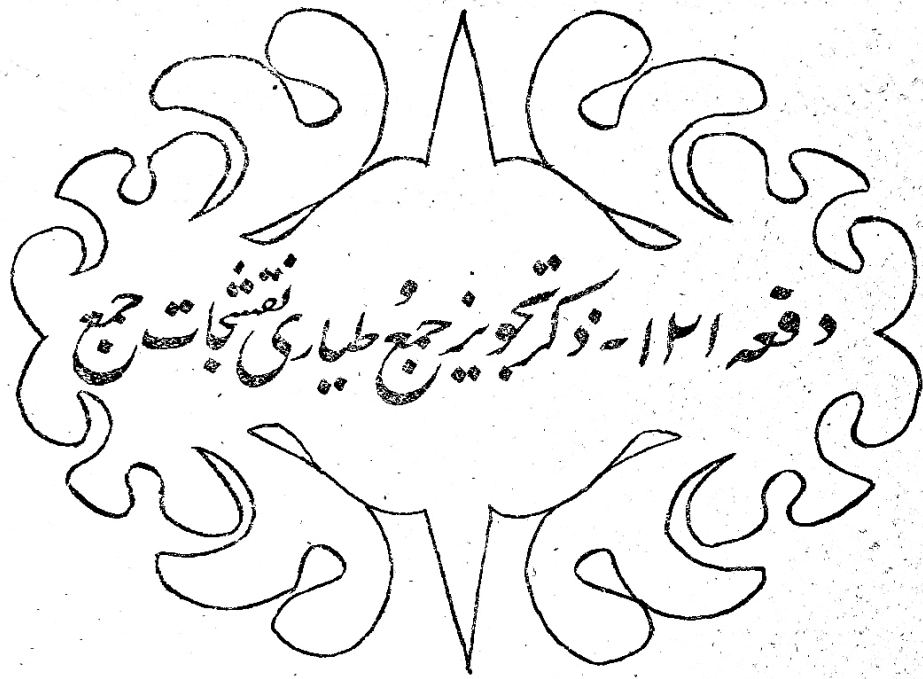 دفعہ ۱۲۱ - ذکر تجویز جمعُ طیاری نقشجات جمع